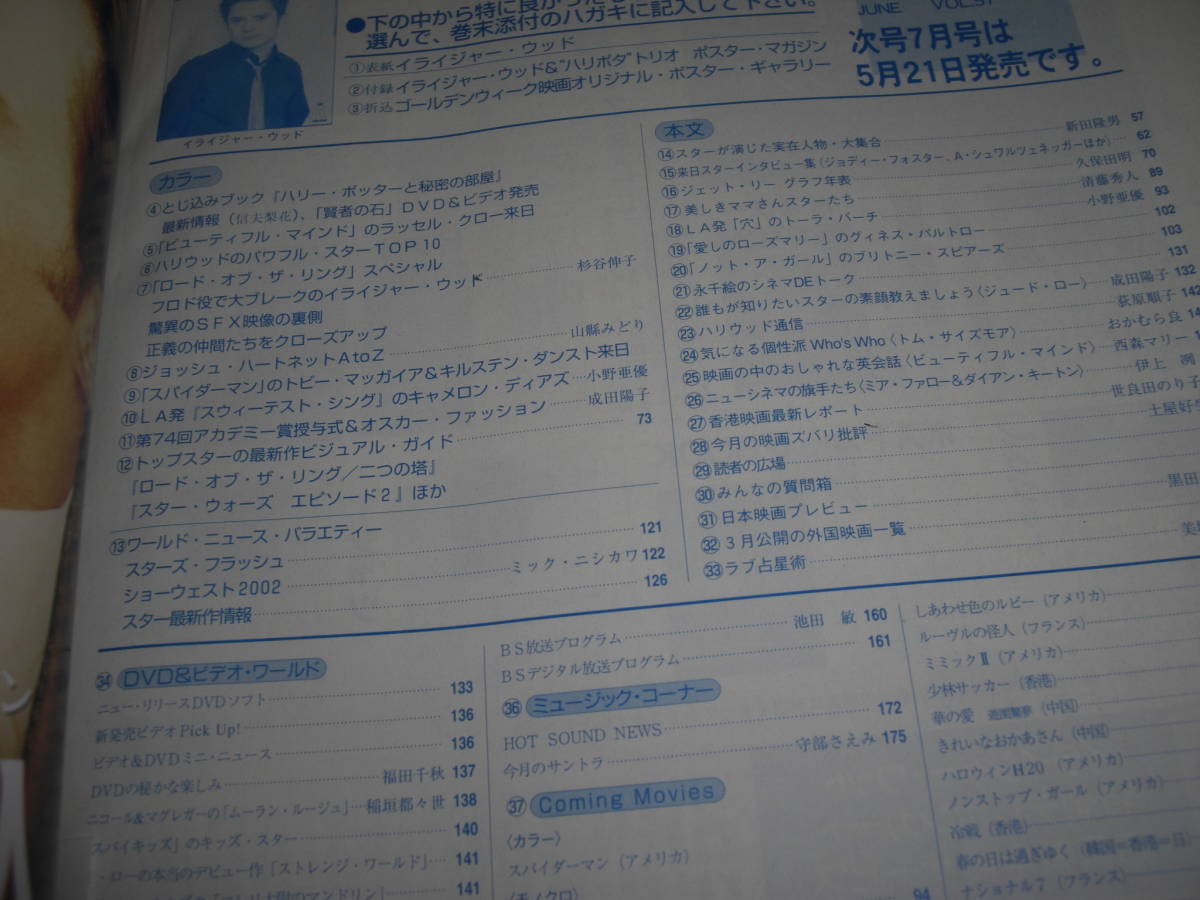 ●下の中から特に良かった
選んで、巻末添付のハガキに記入して下さい。
①表紙 イライジャー・ウッド
②付録 イライジャー・ウッド&"ハリポタ"トリオ ポスター・マガジン
③折込 ゴールデンウィーク映画オリジナル・ポスター・ギャラリー
イライジャー・ウッド
JUNE VOL.57
次号7月号は
5月21日発売です。
カラー
④とじ込みブック『ハリー・ポッターと秘密の部屋』
最新情報(信夫梨花)、「賢者の石」DVD&ビデオ発売
⑤「ビューティフル・マインド」のラッセル・クロー来日
⑥ハリウッドのパワフル・スターTOP10
⑦「ロード・オブ・ザ・リング」スペシャル
フロド役で大ブレークのイライジャー・ウッド 杉谷伸子
驚異のSFX映像の裏側
正義の仲間たちをクローズアップ
⑧ジョッシュ・ハートネットAtoZ 山縣みどり
⑨「スパイダーマン」のトビー・マッガイア&キルステン・ダンスト来日
⑩LA発「スウィーテスト・シング」のキャメロン・ディアズ 小野亜優
⑪第74回アカデミー賞授与式&オスカー・ファッション 成田陽子
⑫トップスターの最新作ビジュアル・ガイド 73
『ロード・オブ・ザ・リング/二つの塔』
『スター・ウォーズ エピソード2』ほか
⑬ワールド・ニュース・バラエティー
スターズ・フラッシュ 121
ショーウェスト2002 ミック・ニシカワ 122
スター最新作情報 126
本文
⑭スターが演じた実在人物・大集合 新田隆男 57
⑮来日スターインタビュー集(ジョディー・フォスター、A・シュワルツェネッガーほか) 62
⑯ジェット・リー グラフ年表 久保田明 70
⑰美しきママさんスターたち 清藤秀人 89
⑱LA発「穴」のトーラ・バーチ 小野亜優 93
⑲「愛しのローズマリー」のグィネス・パルトロー 102
⑳「ノット・ア・ガール」のブリトニー・スピアーズ 103
㉑永千絵のシネマDEトーク 131
㉒誰もが知りたいスターの素顔教えましょう〈ジュード・ロー〉 成田陽子 132
㉓ハリウッド通信 荻原順子 142
㉔気になる個性派Who's Who〈トム・サイズモア〉 おかむら良
㉕映画の中のおしゃれな英会話〈ビューティフル・マインド〉 西森マリー
㉖ニューシネマの旗手たち〈ミア・ファロー&ダイアン・キートン〉
㉗香港映画最新レポート 世良田のり子
㉘今月の映画ズバリ批評 土屋好生
㉙読者の広場
㉚みんなの質問箱
㉛日本映画プレビュー 黒田
㉜3月公開の外国映画一覧
㉝ラブ占星術
㉞DVD&ビデオ・ワールド
ニュー・リリースDVDソフト 133
新発売ビデオPick Up! 136
ビデオ&DVDミニ・ニュース 136
DVDの秘かな楽しみ 福田千秋 137
ニコール&マグレガーの「ムーラン・ルージュ」 稲垣都々世 138
スパイキッズ」のキッズ・スター 140
・ローの本当のデビュー作「ストレンジ・ワールド」 141
141
BS放送プログラム 池田 敏 160
BSデジタル放送プログラム 161
㊱ミュージック・コーナー
HOT SOUND NEWS 172
今月のサントラ 守部さえみ 175
㊲Coming Movies
〈カラー〉
スパイダーマン(アメリカ)
〈モノクロ〉
94
しあわせ色のルビー(アメリカ)
ルーヴルの怪人(フランス)
ミミックⅡ(アメリカ)
少林サッカー(香港)
華の愛 遊園驚夢(中国)
きれいなおかあさん(中国)
ハロウィンH20(アメリカ)
ノンストップ・ガール(アメリカ)
冷戦(香港)
春の日は過ぎゆく(韓国=香港=日)
ナショナル7(フランス)